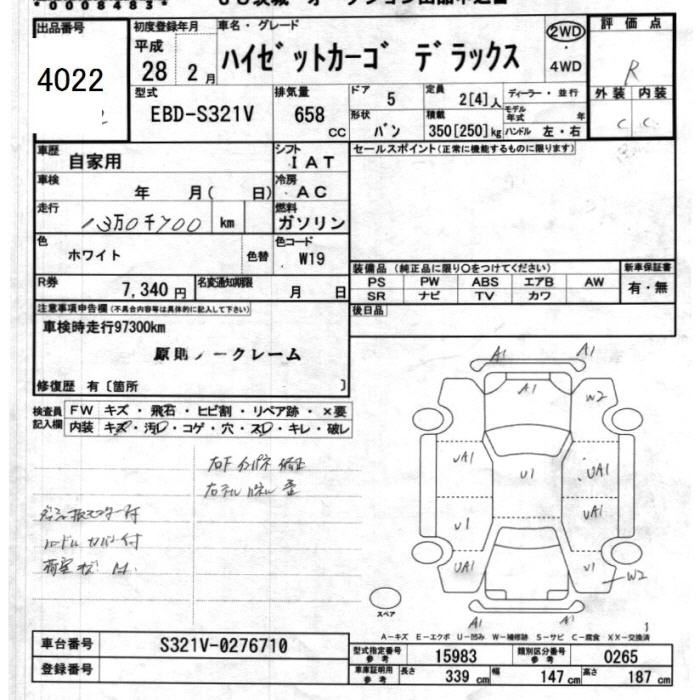 *0008483*
出品番号
4022
初度登録年月
平成
28 2月
車名・グレード
ハイゼットカーゴ デラックス
2WD
・
4WD
評価点
R
外装 内装
C C
型式
EBD-S321V
排気量
658 CC
ドア 5
定員 2[4]人
ディーラー・並行
モデル年式 年
形状 バン
積載 350[250]kg
ハンドル 左・右
車歴
自家用
シフト
IAT
車検
年 月( 日)
冷房
AC
走行
13万0千700 km
燃料
ガソリン
色
ホワイト
色替
色コード
W19
R券
7,340円
名変通知期限
月 日
セールスポイント(正常に機能するものに限ります)
装備品(純正品に限り○をつけてください)
新車保証書
PS PW ABS エアB AW
SR ナビ TV カワ
有・無
後日品
注意事項申告欄(不具合内容等は具体的に記入して下さい)
車検時走行97300km
原則ノークレーム
修復歴 有〔箇所 〕
検査員記入欄
FW キズ・飛石・ヒビ割・リペア跡・×要
内装 キズ・汚レ・コゲ・穴・スレ・キレ・破レ
A1 A1
A1
W2
UA1
U1
UA1
U1
UA1
UA1
U1
W2
A1 A1
スペア
A－キズ E－エクボ U－凹み W－補修跡 S－サビ C－腐食 XX－交換済
車台番号
S321V-0276710
登録番号
型式指定番号 参考
15983
類別区分番号 参考
0265
車庫証明用 参考
長さ 339 cm
幅 147 cm
高さ 187 cm